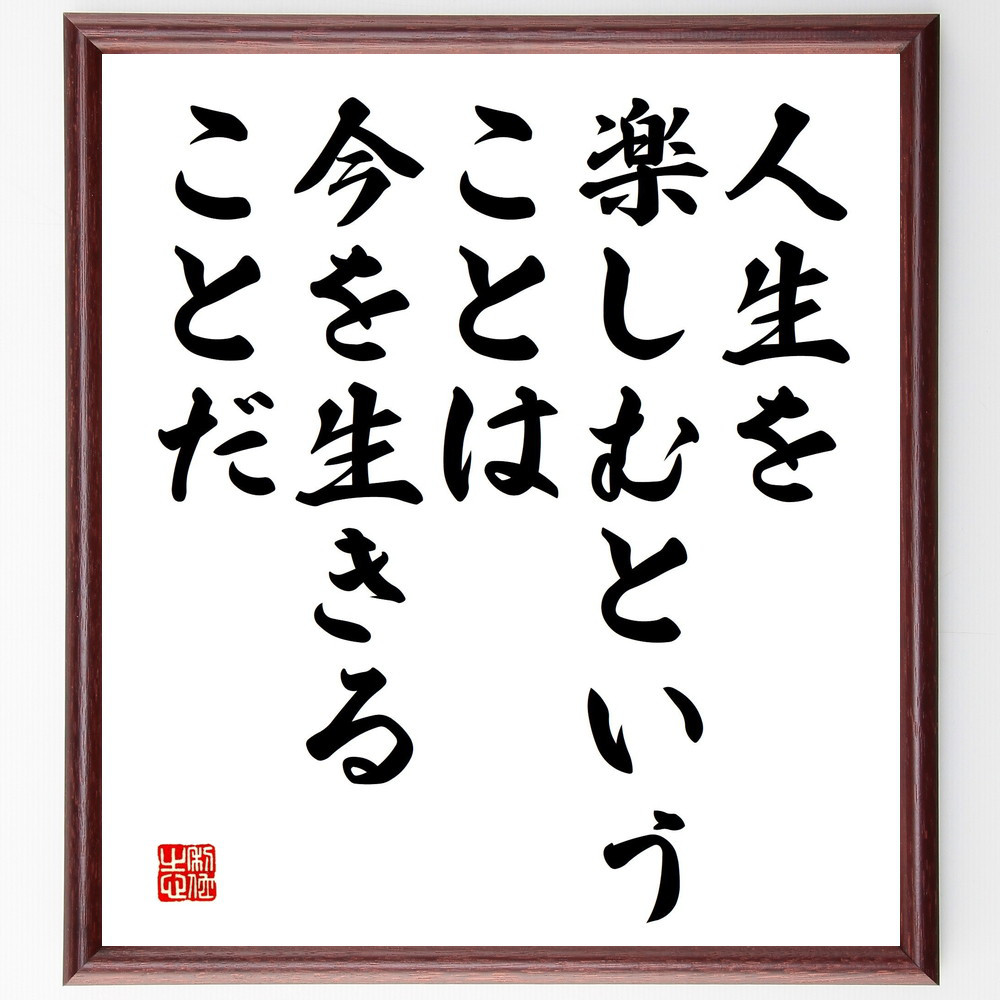 人生を
楽しむという
ことは
今を生きる
ことだ